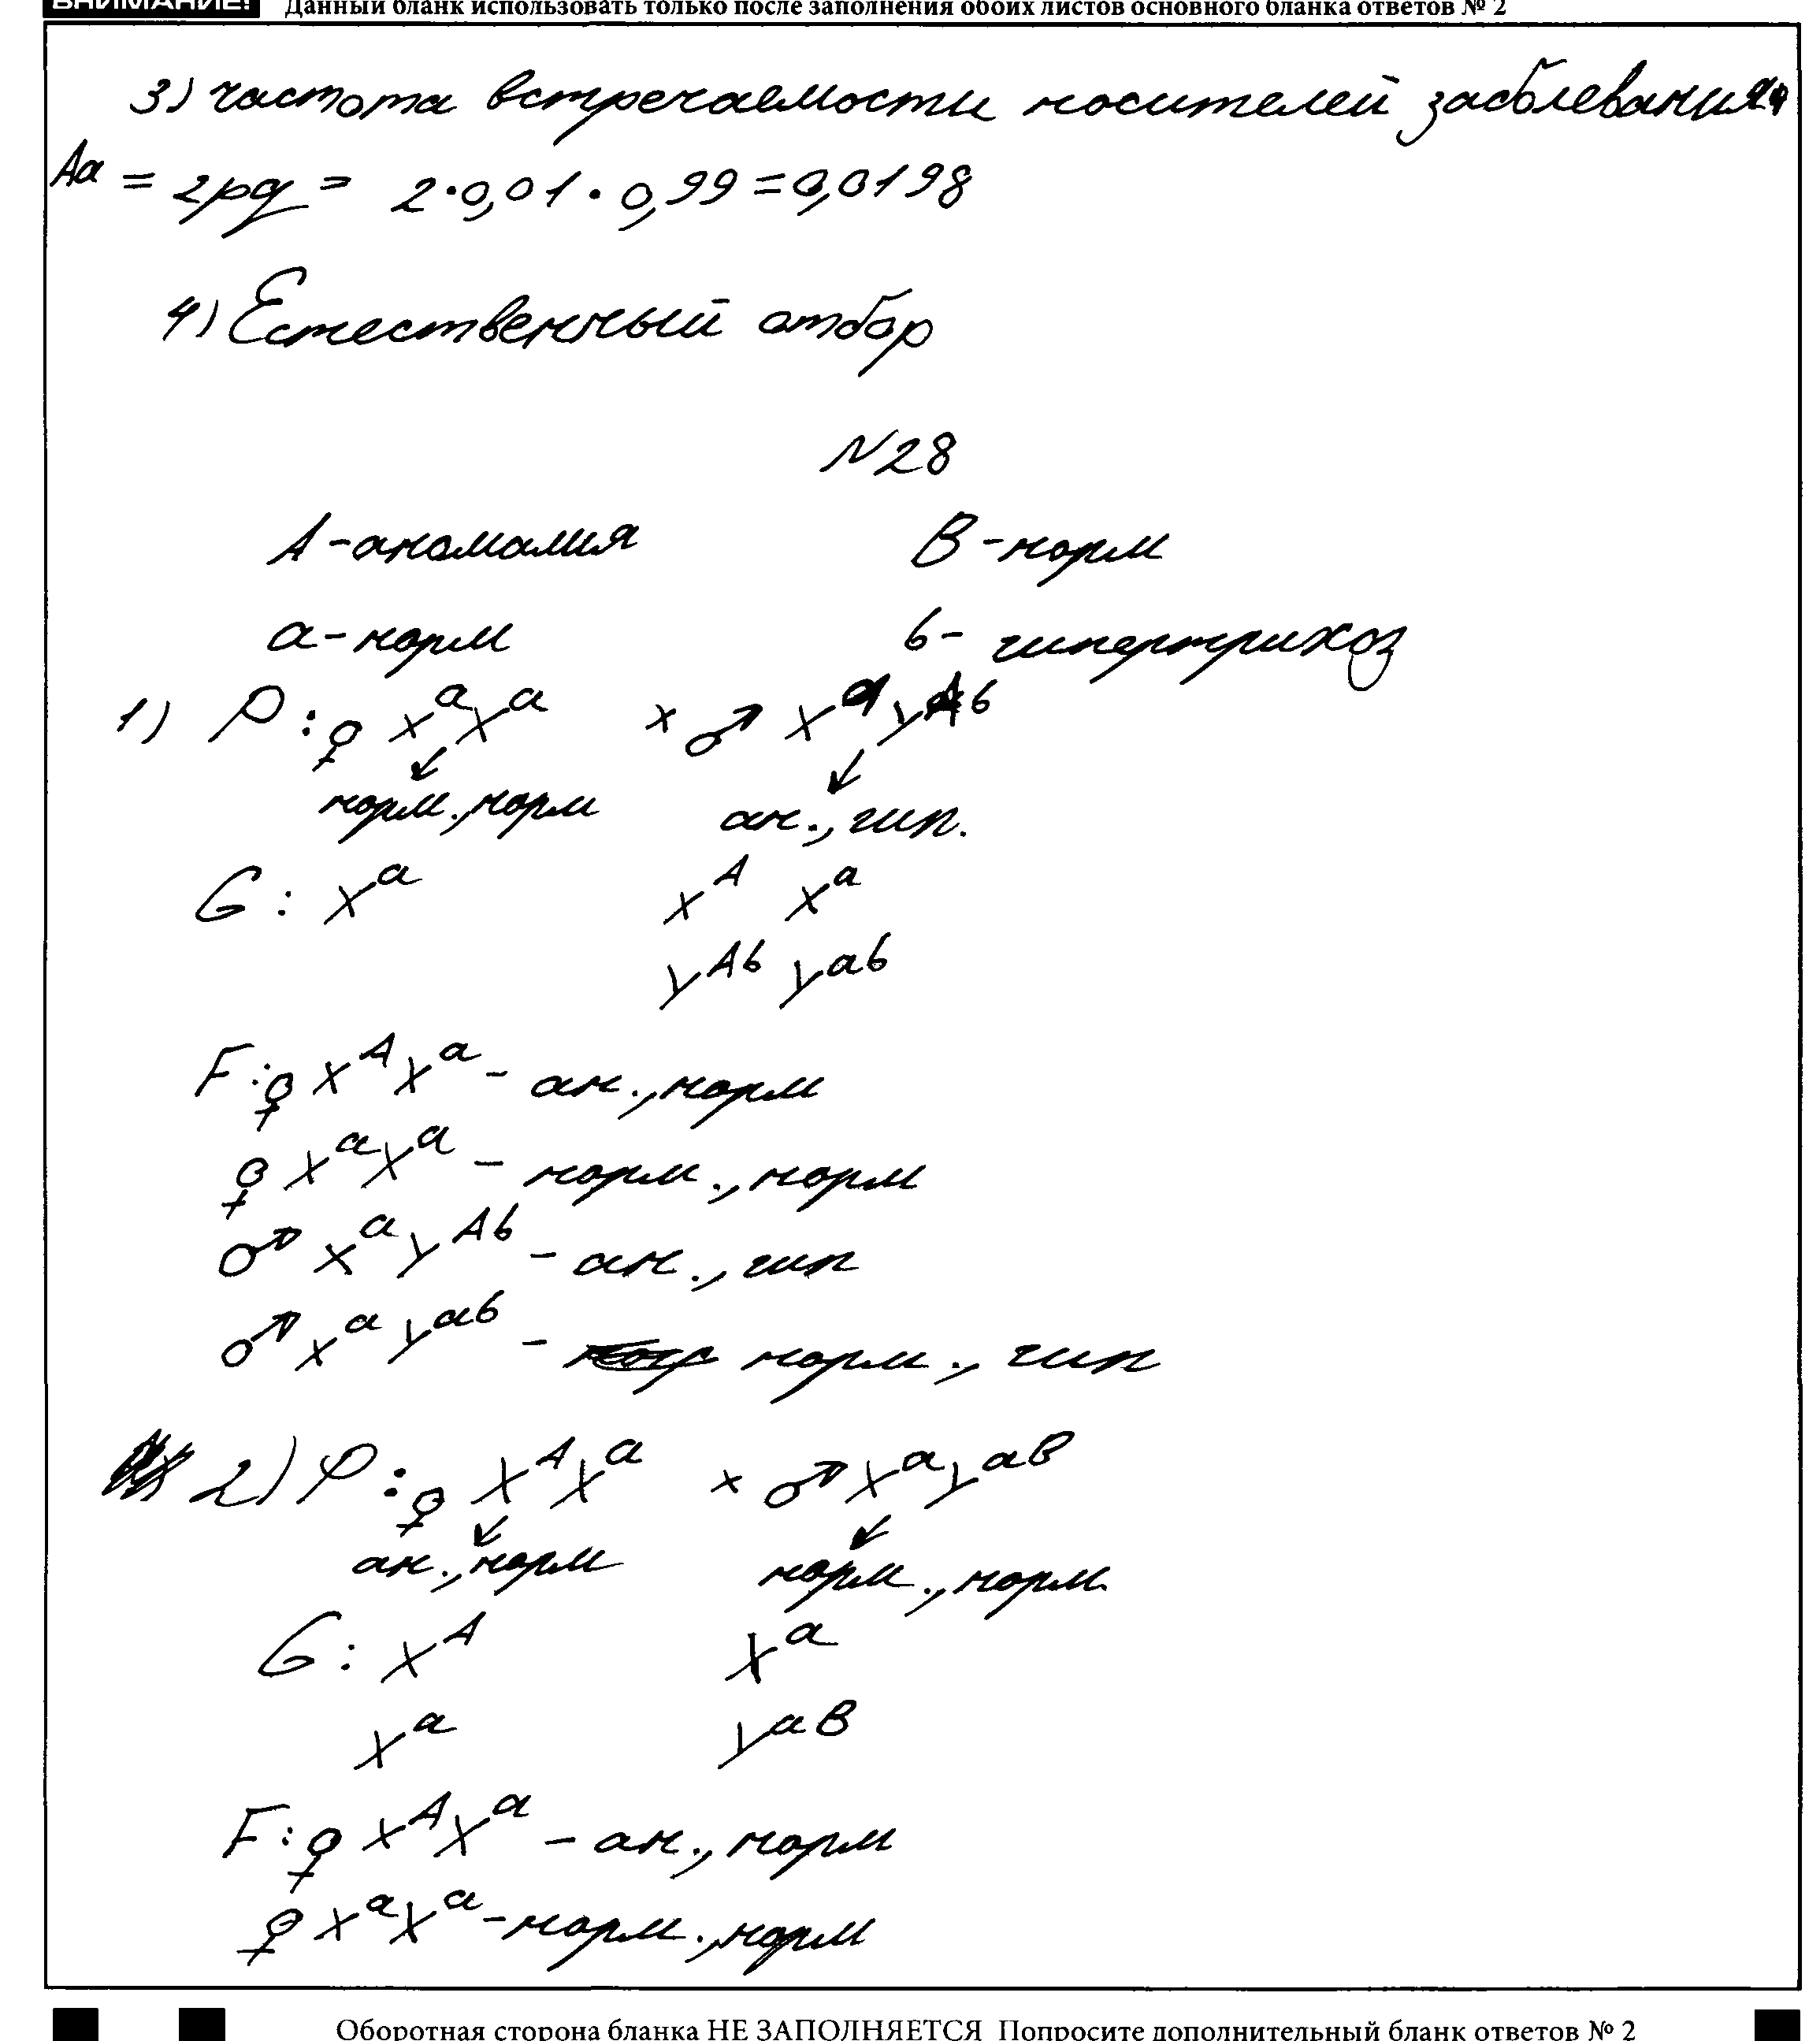 ВНИМАНИЕ! Данный бланк использовать только после заполнения обоих листов основного бланка ответов № 2
3) частота встречаемости носителей заболевания
Aa = 2pq = 2·0,01·0,99=0,0198
4) Естественный отбор
N28
А-аномалия В-норм
а-норм b- гипертрихоз
1) P: ♀ XᵃXᵃ x ♂ XᵃYᴬᵇ
норм., норм ан., гип.
G: Xᵃ Xᴬ Xᵃ
Yᴬᵇ Yᵃᵇ
F: ♀ XᴬXᵃ - ан., норм
♀ XᵃXᵃ - норм., норм
♂ XᵃYᴬᵇ - ан., гип
♂ XᵃYᵃᵇ - норм., гип
2) P: ♀ XᴬXᵃ x ♂ XᵃYᵃᴮ
ан., норм норм., норм.
G: Xᴬ Xᵃ
Xᵃ Yᵃᴮ
F: ♀ XᴬXᵃ - ан., норм
♀ XᵃXᵃ - норм., норм
Оборотная сторона бланка НЕ ЗАПОЛНЯЕТСЯ Попросите дополнительный бланк ответов № 2